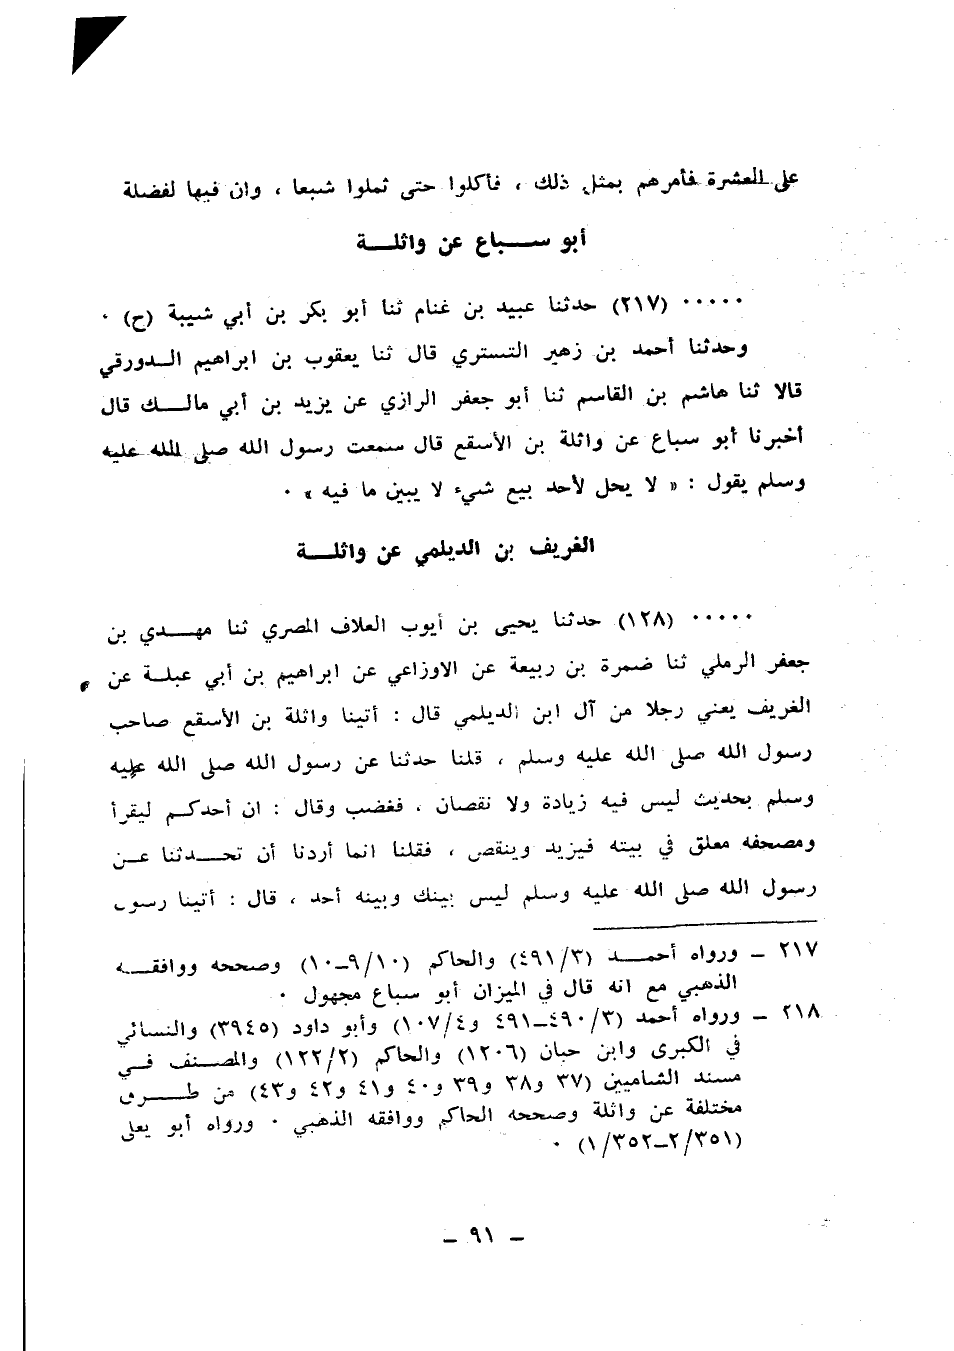 على العشرة فأمرهم بمثل ذلك ، فأكلوا حتى ثملوا شبعا ، وان فيها لفضلة
أبو ســـباع عن واثلـــة
٠٠٠٠٠ (٢١٧) حدثنا عبيد بن غنام ثنا أبو بكر بن أبي شيبة (ح) ٠
وحدثنا أحمد بن زهير التستري قال ثنا يعقوب بن ابراهيم الـدورقي
قالا ثنا هاشم بن القاسم ثنا أبو جعفر الرازي عن يزيد بن أبي مالـــك قال
أخبرنا أبو سباع عن واثلة بن الأسقع قال سمعت رسول الله صلى الله عليه
وسلم يقول : « لا يحل لأحد بيع شيء لا يبين ما فيه » ٠
الغريف بن الديلمي عن واثلـــة
٠٠٠٠٠ (١٢٨) حدثنا يحيى بن أيوب العلاف المصري ثنا مهـــدي بن
جعفر الرملي ثنا ضمرة بن ربيعة عن الاوزاعي عن ابراهيم بن أبي عبلـة عن
الغريف يعني رجلا من آل ابن الديلمي قال : أتينا واثلة بن الأسقع صاحب
رسول الله صلى الله عليه وسلم ، قلنا حدثنا عن رسول الله صلى الله عليه
وسلم بحديث ليس فيه زيادة ولا نقصان ، فغضب وقال : ان أحدكـم ليقرأ
ومصحفه معلق في بيته فيزيد وينقص ، فقلنا انما أردنا أن تحـــدثنا عـن
رسول الله صلى الله عليه وسلم ليس بينك وبينه أحد ، قال : أتينا رسول
٢١٧ ـ ورواه أحمـــد (٤٩١/٣) والحاكم (٩/١٠ـ١٠) وصححه ووافقـــه
الذهبي مع انه قال في الميزان أبو سباع مجهول ٠
٢١٨ ـ ورواه أحمد (٤٩٠/٣ـ٤٩١ و١٠٧/٤) وأبو داود (٣٩٤٥) والنسائي
في الكبرى وابن حبان (١٢٠٦) والحاكم (١٢٢/٢) والمصـنف فـــي
مسند الشاميين (٣٧ و٣٨ و٣٩ و٤٠ و٤١ و٤٢ و٤٣) من طـــرق
مختلفة عن واثلة وصححه الحاكم ووافقه الذهبي ٠ ورواه أبو يعلى
(٢/٣٥١ـ١/٣٥٢) ٠
ـ ٩١ ـ